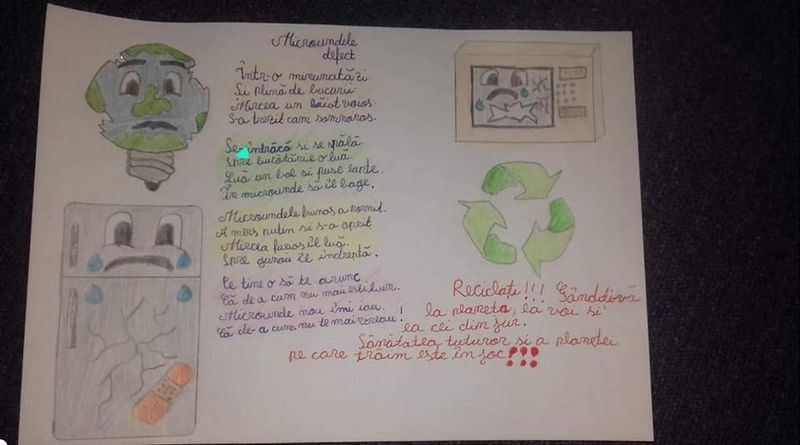 Microundele
defect
Într-o minunată zi
Și plină de bucurii
Mircea un băiat voios
S-a trezit cam somnoros.
Se îmbracă si se spălă
Spre bucătărie o luă
Luă un bol si puse lapte
În microunde să îl bage.
Microundele frumos a pornit
A mers putin si s-a oprit
Mircea furios îl luă
Spre gunoi îl îndreptă.
Pe tine o să te arunc
Că de-a cum nu mai esti bun.
Microunde nou îmi iau
Că de-a cum nu te mai vreau!
Reciclați!!! Gândiți-vă
la planeta, la voi si
la cei din jur.
Sănătatea tuturor si a planetei
pe care trăim este în joc!!!